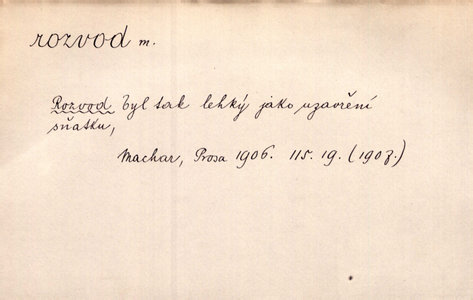 rozvod m.
Rozvod byl tak lehký jako uzavření
sňatku,
Machar, Prosa 1906. 115. 19. (1903.)